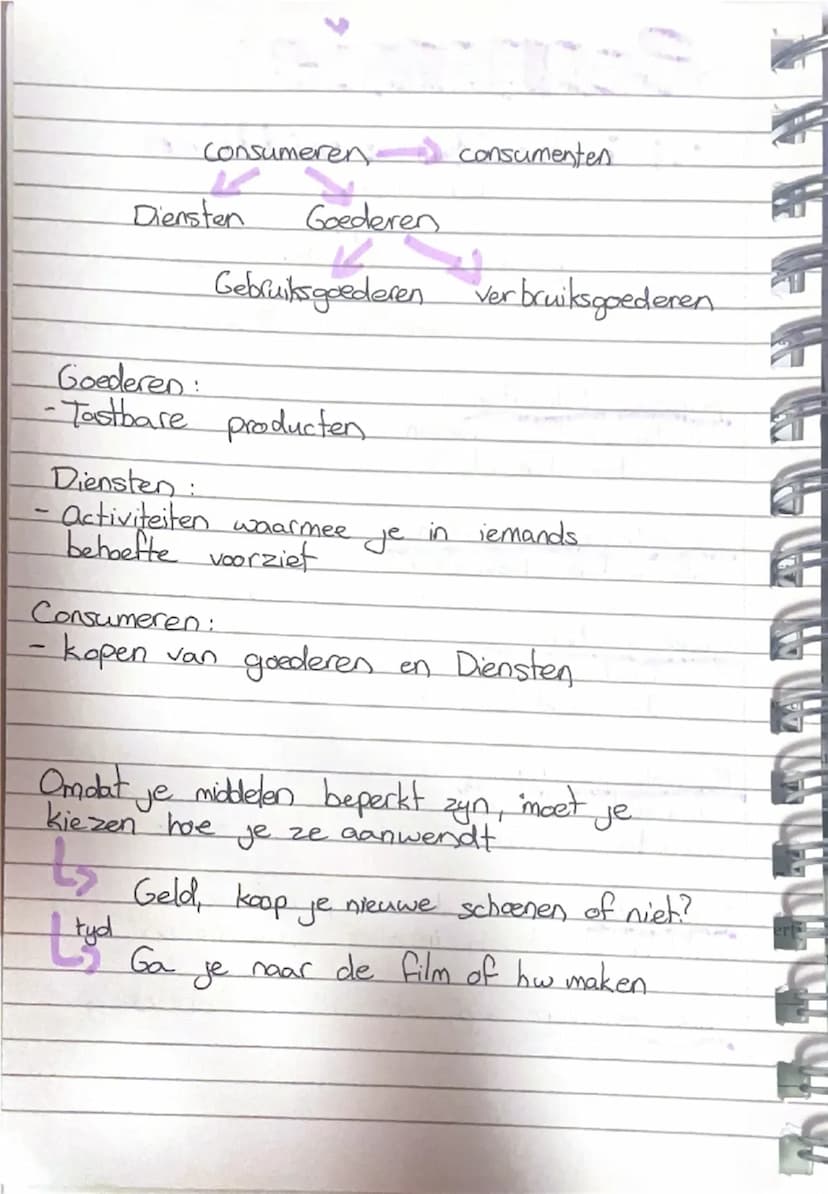 consumeren → consumenten
Diensten Goederen
Gebruiksgoederen verbruiksgoederen
Goederen:
- Tastbare producten
Diensten:
- Activiteiten waarmee je in iemands
behoefte voorziet
Consumeren:
- kopen van goederen en Diensten
Omdat je middelen beperkt zyn, moet je
kiezen hoe je ze aanwendt
↳ Geld, koop je nieuwe schoenen of niet?
tyd
↳ Ga je naar de film of hw maken